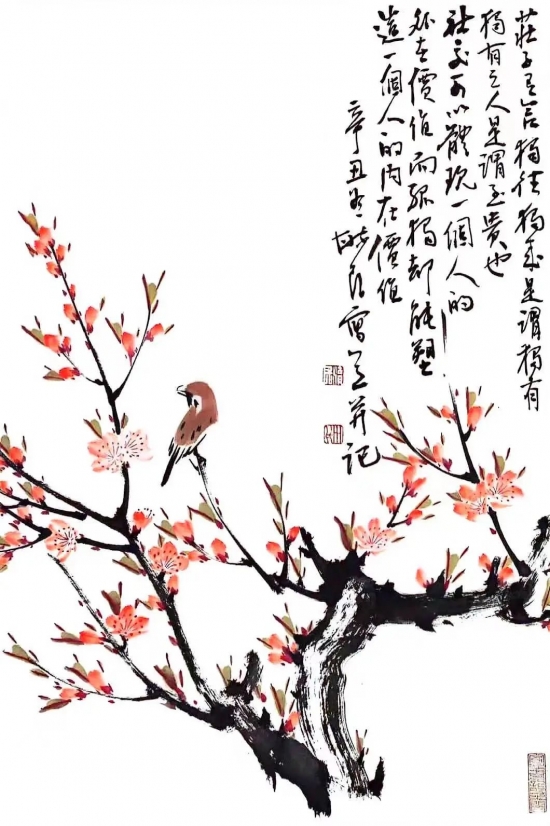 莊子有言獨往獨來是謂獨有
獨有之人是謂至貴也
社交可以體現一個人的
外在價值而孤獨却能塑
造一個人的内在價值
辛丑 寫 并记